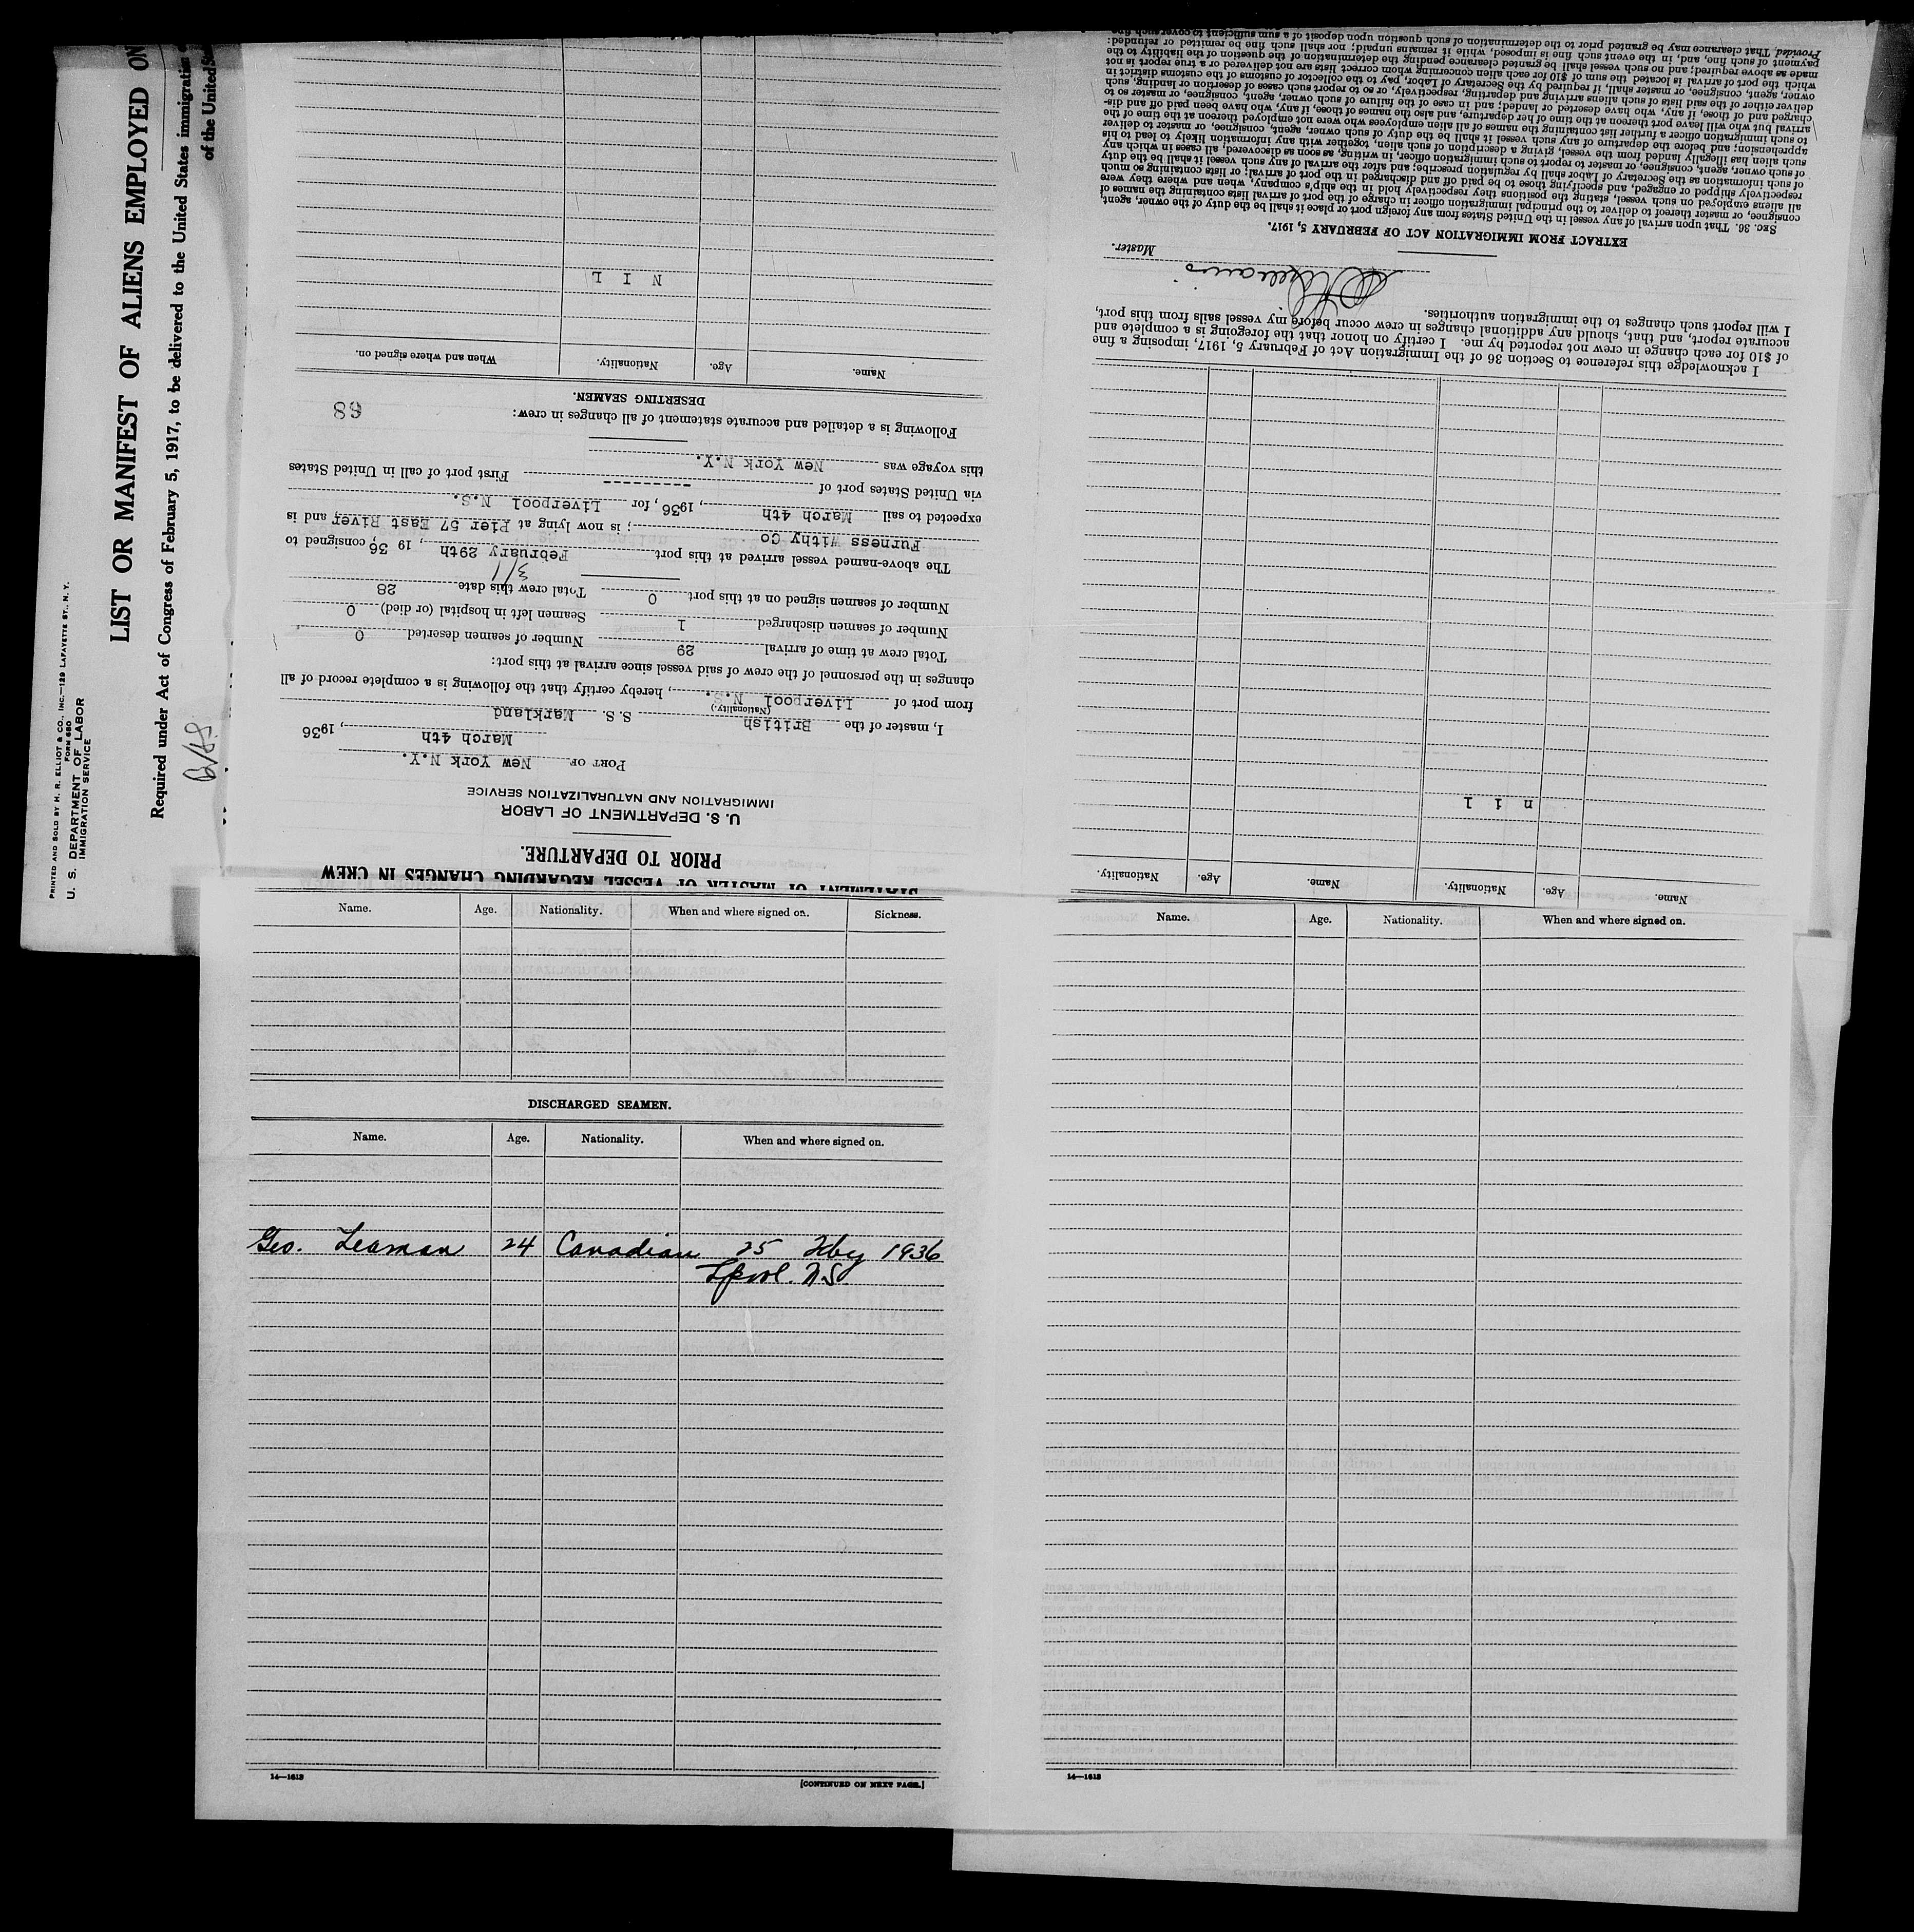 PRINTED AND SOLD BY H. R. ELLIOT & CO. INC.—129 LAFAYETTE ST., N. Y.
FORM 680
U. S. DEPARTMENT OF LABOR
IMMIGRATION SERVICE
LIST OR MANIFEST OF ALIENS EMPLOYED ON
Required under Act of Congress of February 5, 1917, to be delivered to the United States immigration
of the United
STATEMENT OF MASTER OF VESSEL REGARDING CHANGES IN CREW
PRIOR TO DEPARTURE.
U. S. DEPARTMENT OF LABOR
IMMIGRATION AND NATURALIZATION SERVICE
PORT OF New York N.Y.
March 4th, 1936
I, master of the British S. S. Markland
(Nationality.)
from port of Liverpool N.S., hereby certify that the following is a complete record of all
changes in the personnel of the crew of said vessel since arrival at this port:
Total crew at time of arrival 29 Number of seamen deserted 0
Number of seamen discharged 1 Seamen left in hospital (or died) 0
Number of seamen signed on at this port 0 Total crew this date 28
3/1
The above-named vessel arrived at this port February 29th, 1936, consigned to
Furness Withy Co; is now lying at Pier 57 East River, and is
expected to sail March 4th, 1936, for Liverpool N.S.
via United States port of --------- First port of call in United States
this voyage was New York N.Y.
Following is a detailed and accurate statement of all changes in crew:
68
DESERTING SEAMEN.
Name. Age. Nationality. When and where signed on.
N I L
Name. Age. Nationality. Name. Age. Nationality.
n i l
I acknowledge this reference to Section 36 of the Immigration Act of February 5, 1917, imposing a fine
of $10 for each change in crew not reported by me. I certify on honor that the foregoing is a complete and
accurate report, and that, should any additional changes in crew occur before my vessel sails from this port,
I will report such changes to the immigration authorities.
Master.
EXTRACT FROM IMMIGRATION ACT OF FEBRUARY 5, 1917.
SEC. 36. That upon arrival of any vessel in the United States from any foreign port or place it shall be the duty of the owner, agent,
consignee, or master thereof to deliver to the principal immigration officer in charge of the port of arrival lists containing the names of
all aliens employed on such vessel, stating the positions they respectively hold in the ship's company, when and where they were
respectively shipped or engaged, and specifying those to be paid off and discharged in the port of arrival; or lists containing so much
of such information as the Secretary of Labor shall by regulation prescribe; and after the arrival of any such vessel it shall be the duty
of such owner, agent, consignee, or master to report to such immigration officer, in writing, as soon as discovered, all cases in which any
such alien has illegally landed from the vessel, giving a description of such alien, together with any information likely to lead to his
apprehension; and before the departure of any such vessel it shall be the duty of such owner, agent, consignee, or master to deliver
to such immigration officer a further list containing the names of all alien employees who were not employed thereon at the time of the
arrival but who will leave port thereon at the time of her departure, and also the names of those, if any, who have been paid off and dis-
charged and of those, if any, who have deserted or landed; and in case of the failure of such owner, agent, consignee, or master so to
deliver either of the said lists of such aliens arriving and departing, respectively, or so to report such cases of desertion or landing, such
owner, agent, consignee, or master shall, if required by the Secretary of Labor, pay to the collector of customs of the customs district in
which the port of arrival is located the sum of $10 for each alien concerning whom correct lists are not delivered or a true report is not
made as above required; and no such vessel shall be granted clearance pending the determination of the question of the liability to the
payment of such fine, and, in the event such fine is imposed, while it remains unpaid; nor shall such fine be remitted or refunded:
Provided, That clearance may be granted prior to the determination of such question upon deposit of a sum sufficient to cover such fine
Name. Age. Nationality. When and where signed on. Sickness.
DISCHARGED SEAMEN.
Name. Age. Nationality. When and where signed on.
Geo. Leaman 24 Canadian 25 Feby 1936
Lpool. N.S.
14—1613
[CONTINUED ON NEXT PAGE.]
Name. Age. Nationality. When and where signed on.
14—1613